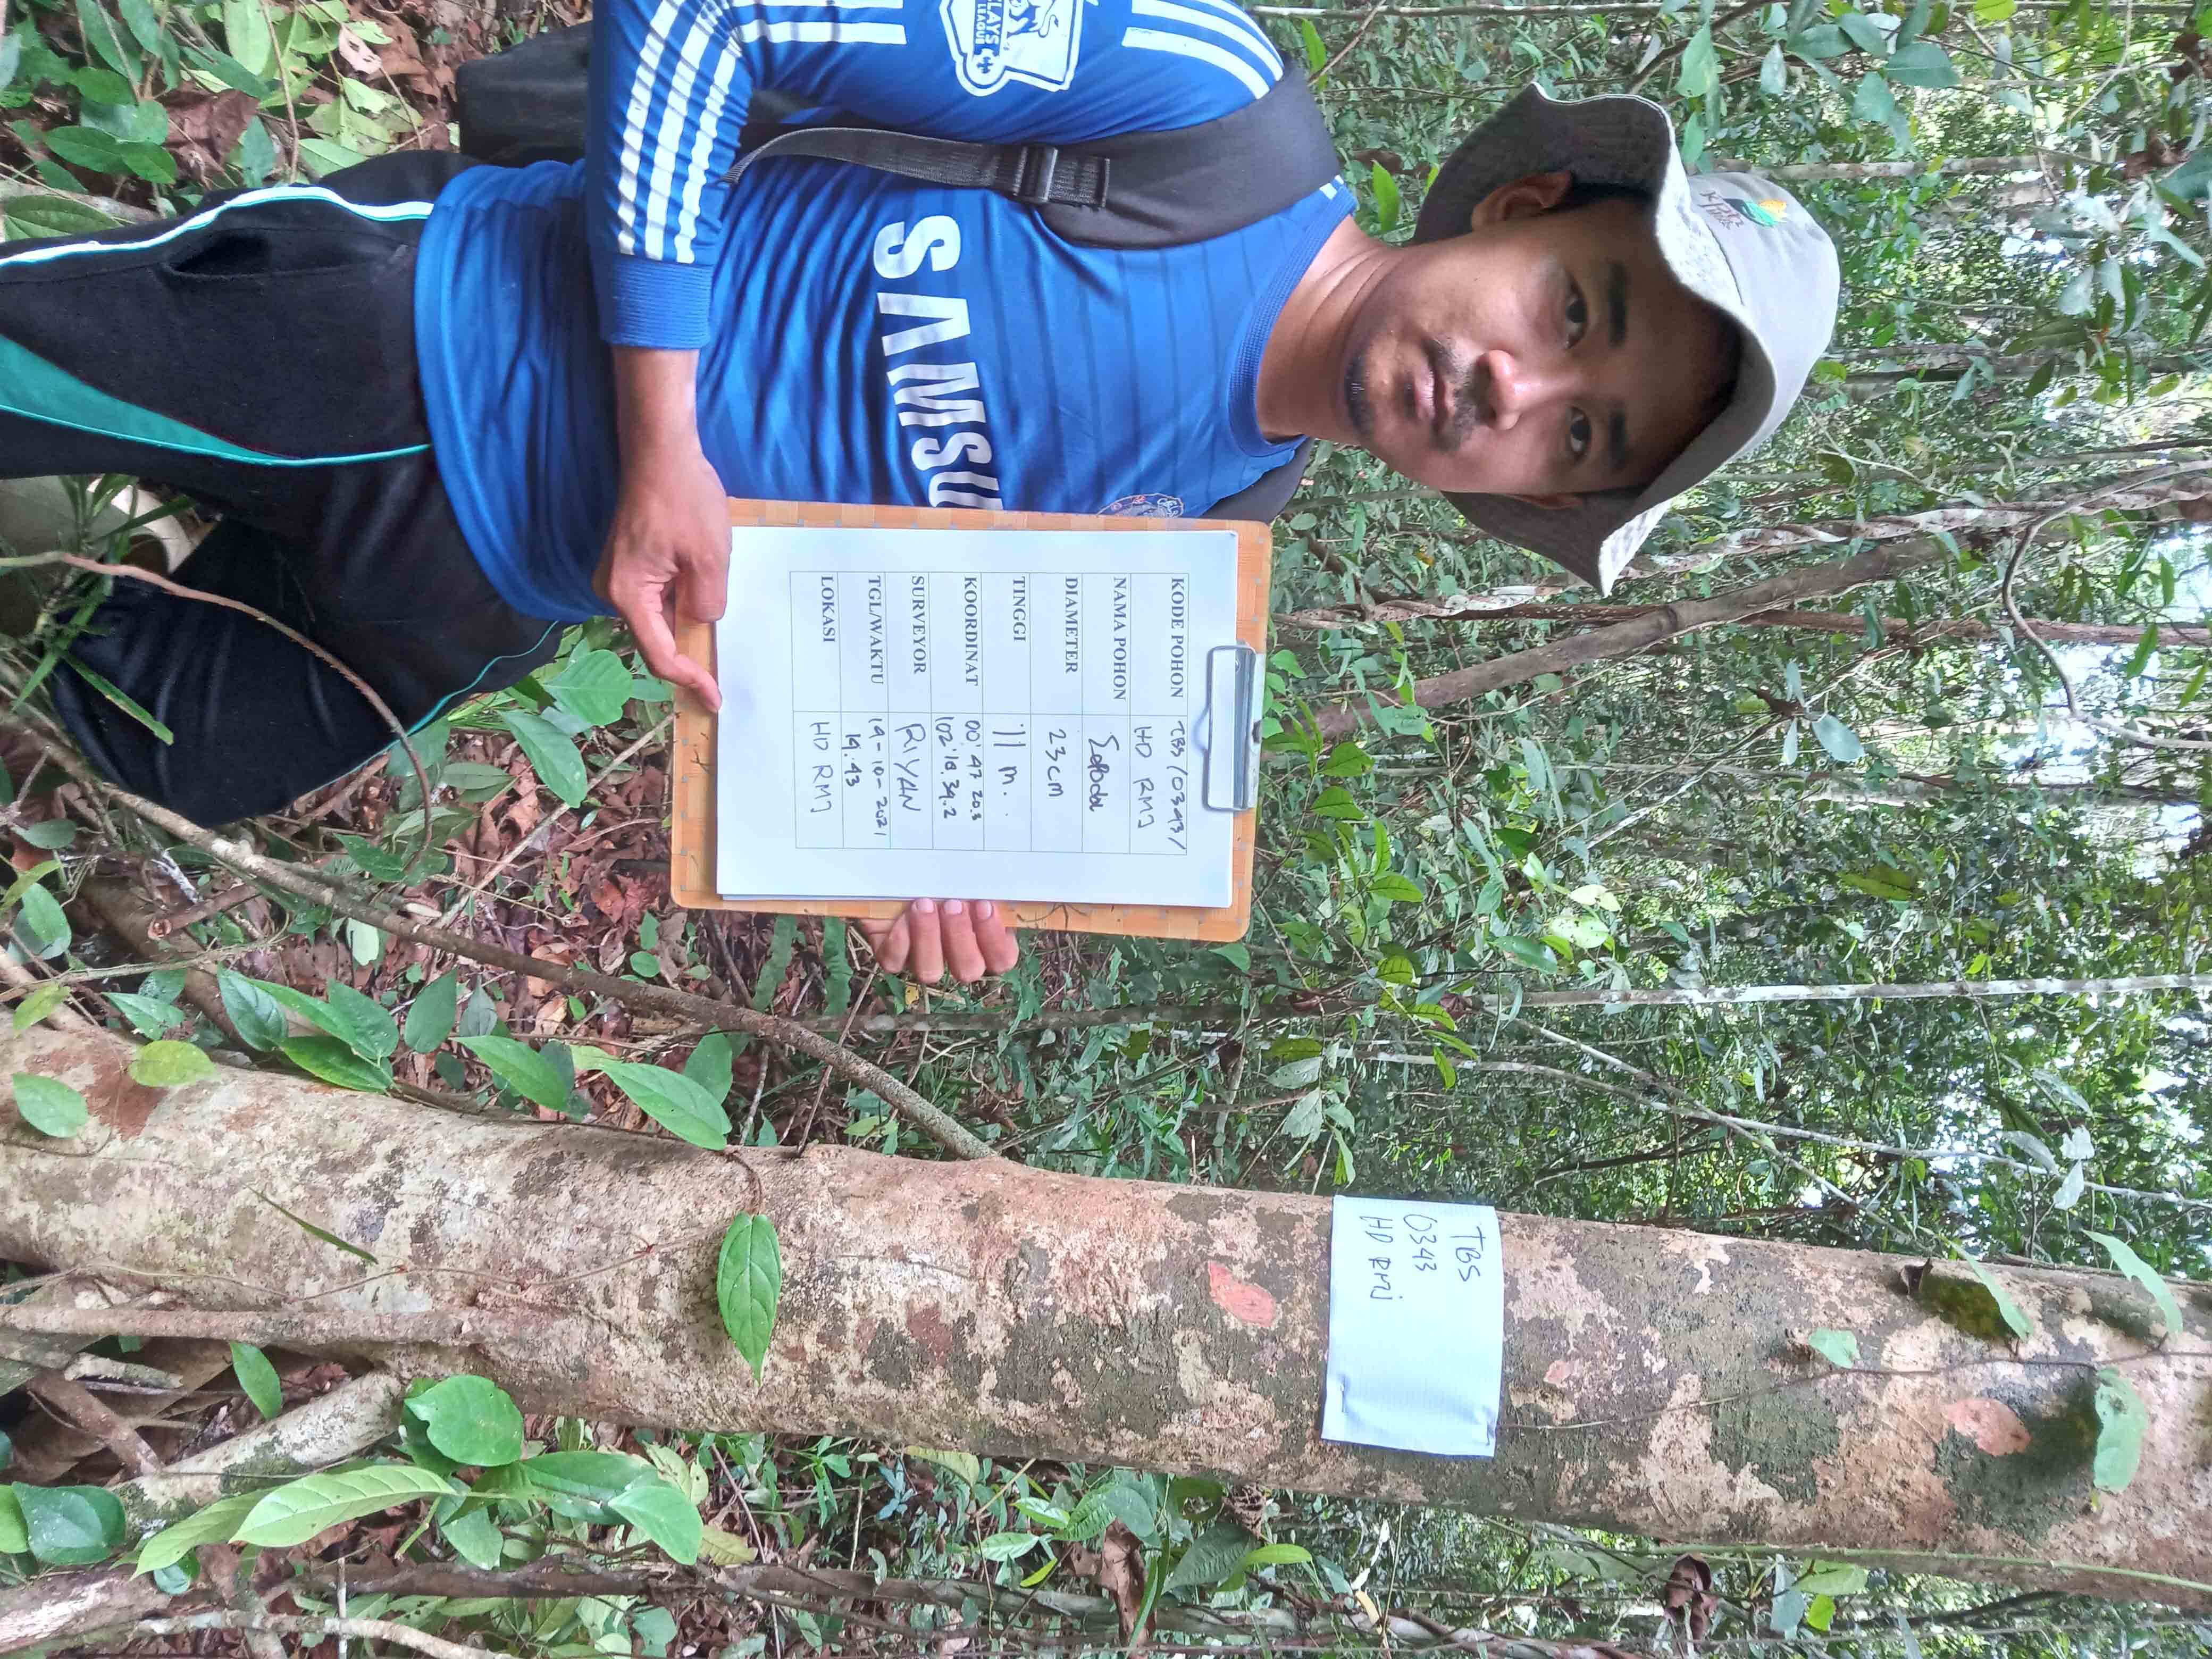 TBS
0343
HD RMJ
KODE POHON TBS/0343/
HD RMJ
NAMA POHON
DIAMETER 23 cm
TINGGI 11 m.
KOORDINAT 00' 47 20.3
102' 18. 34.2
SURVEYOR RIYAN
TGL/WAKTU 14-10-2021
14.43
LOKASI HD RMJ
SAMSU
CLAYS
LEAGUE